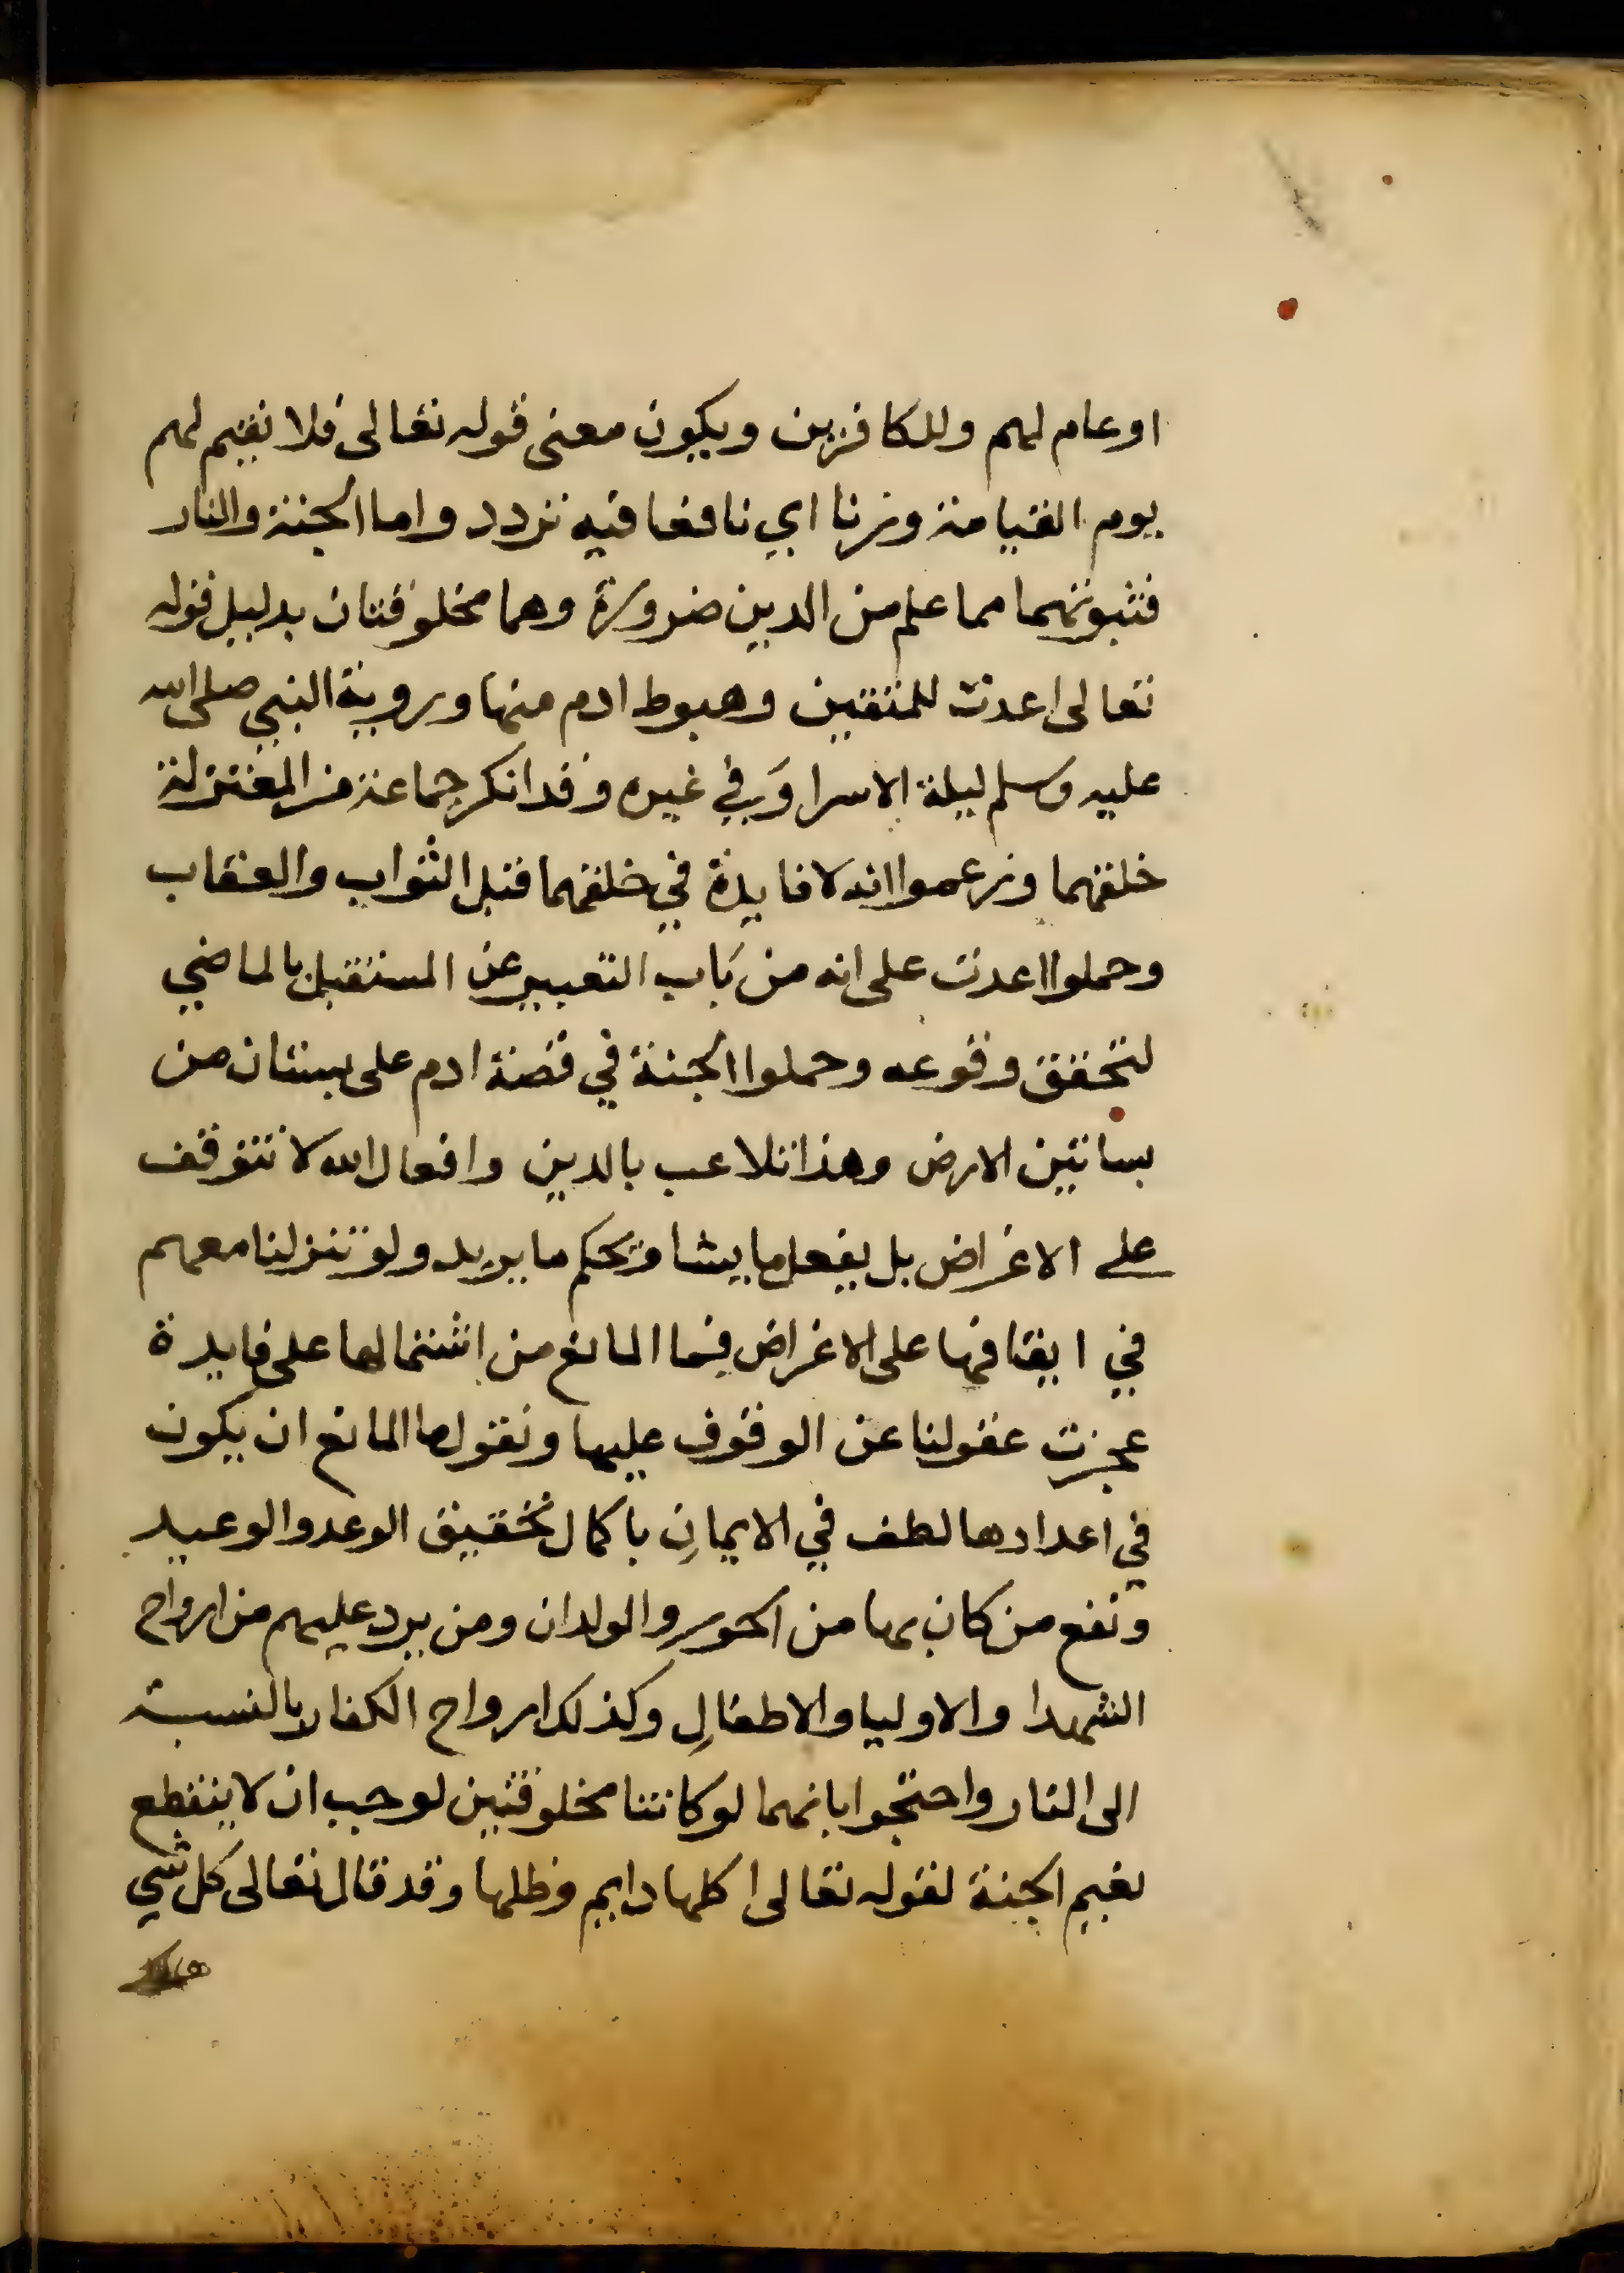 او عام لهم وللكافرين ويكون معنى قوله تعالى فلا نقيم لهم
يوم القيامة وزنا اي نافعا فيه تردد واما الجنة والنار
فثبوتهما مما علم من الدين ضرورة وهما مخلوقتان بدليل قوله
تعالى اعدت للمتقين وهبوط ادم منها وروية النبي صلى الله
عليه وسلم ليلة الاسرا وفي غيره وقد انكر جماعة من المعتزلة
خلقهما وزعموا انه لا فايدة في خلقهما قبل الثواب والعقاب
وحملوا اعدت على انه من باب التعبير عن المستقبل بالماضي
لتحقق وقوعه وحملوا الجنة في قصة ادم على بستان من
بساتين الارض وهذا تلاعب بالدين وافعال الله لا تتوقف
على الاغراض بل يفعل ما يشا ويحكم ما يريد ولو تنزلنا معهم
في ايقافها على الاغراض فما المانع من اشتمالها على فايدة
عجزت عقولنا عن الوقوف عليها ونقول ما المانع ان يكون
في اعدادها لطف في الايمان باكمال تحقيق الوعد والوعيد
ونفع من كان بها من الحور والولدان ومن يرد عليهم من ارواح
الشهدا والاوليا والاطفال وكذلك ارواح الكفار بالنسبة
الى النار واحتجوا بانهما لو كانتا مخلوقتين لوجب ان لا ينقطع
نعيم الجنة لقوله تعالى اكلها دايم وظلها وقد قال تعالى كل شي